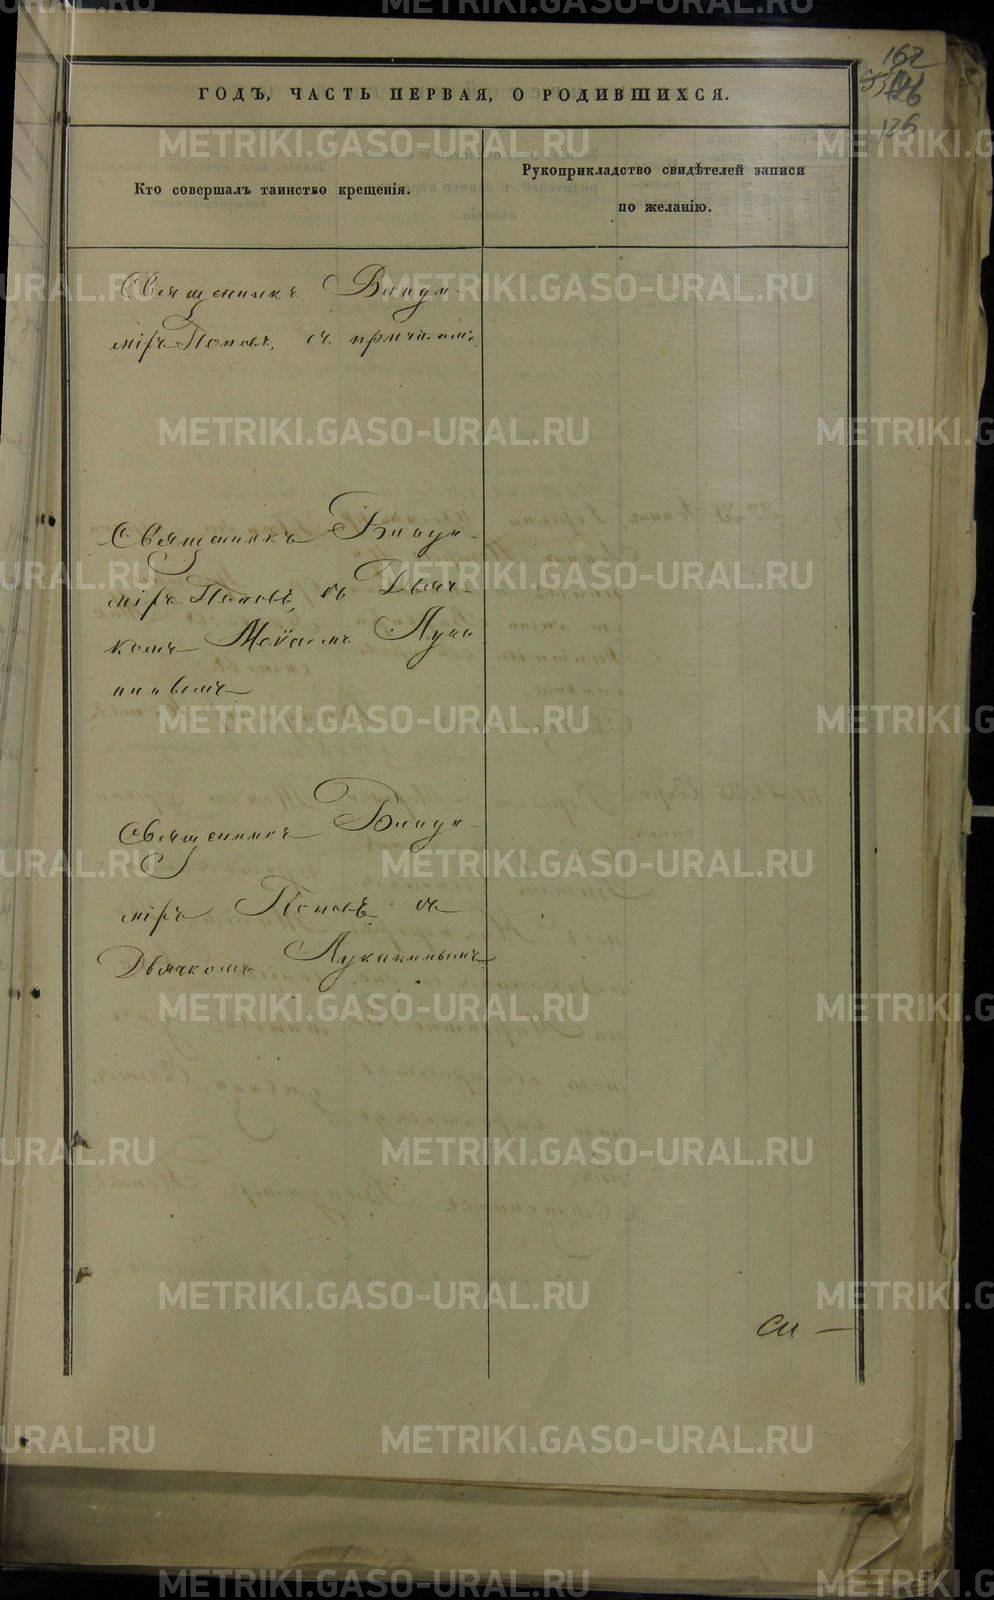 162
126
126
ГОДЪ, ЧАСТЬ ПЕРВАЯ, О РОДИВШИХСЯ.
Кто совершалъ таинство крещенія.
Рукоприкладство свидѣтелей записи
по желанію.
Священникъ Влади-
міръ Поповъ, съ причтомъ.
Священникъ Влади-
міръ Поповъ, съ Дьяч-
комъ Лука-
Священникъ Влади-
міръ Поповъ, съ
Дьячкомъ Луканинымъ
METRIKI.GASO-URAL.RU